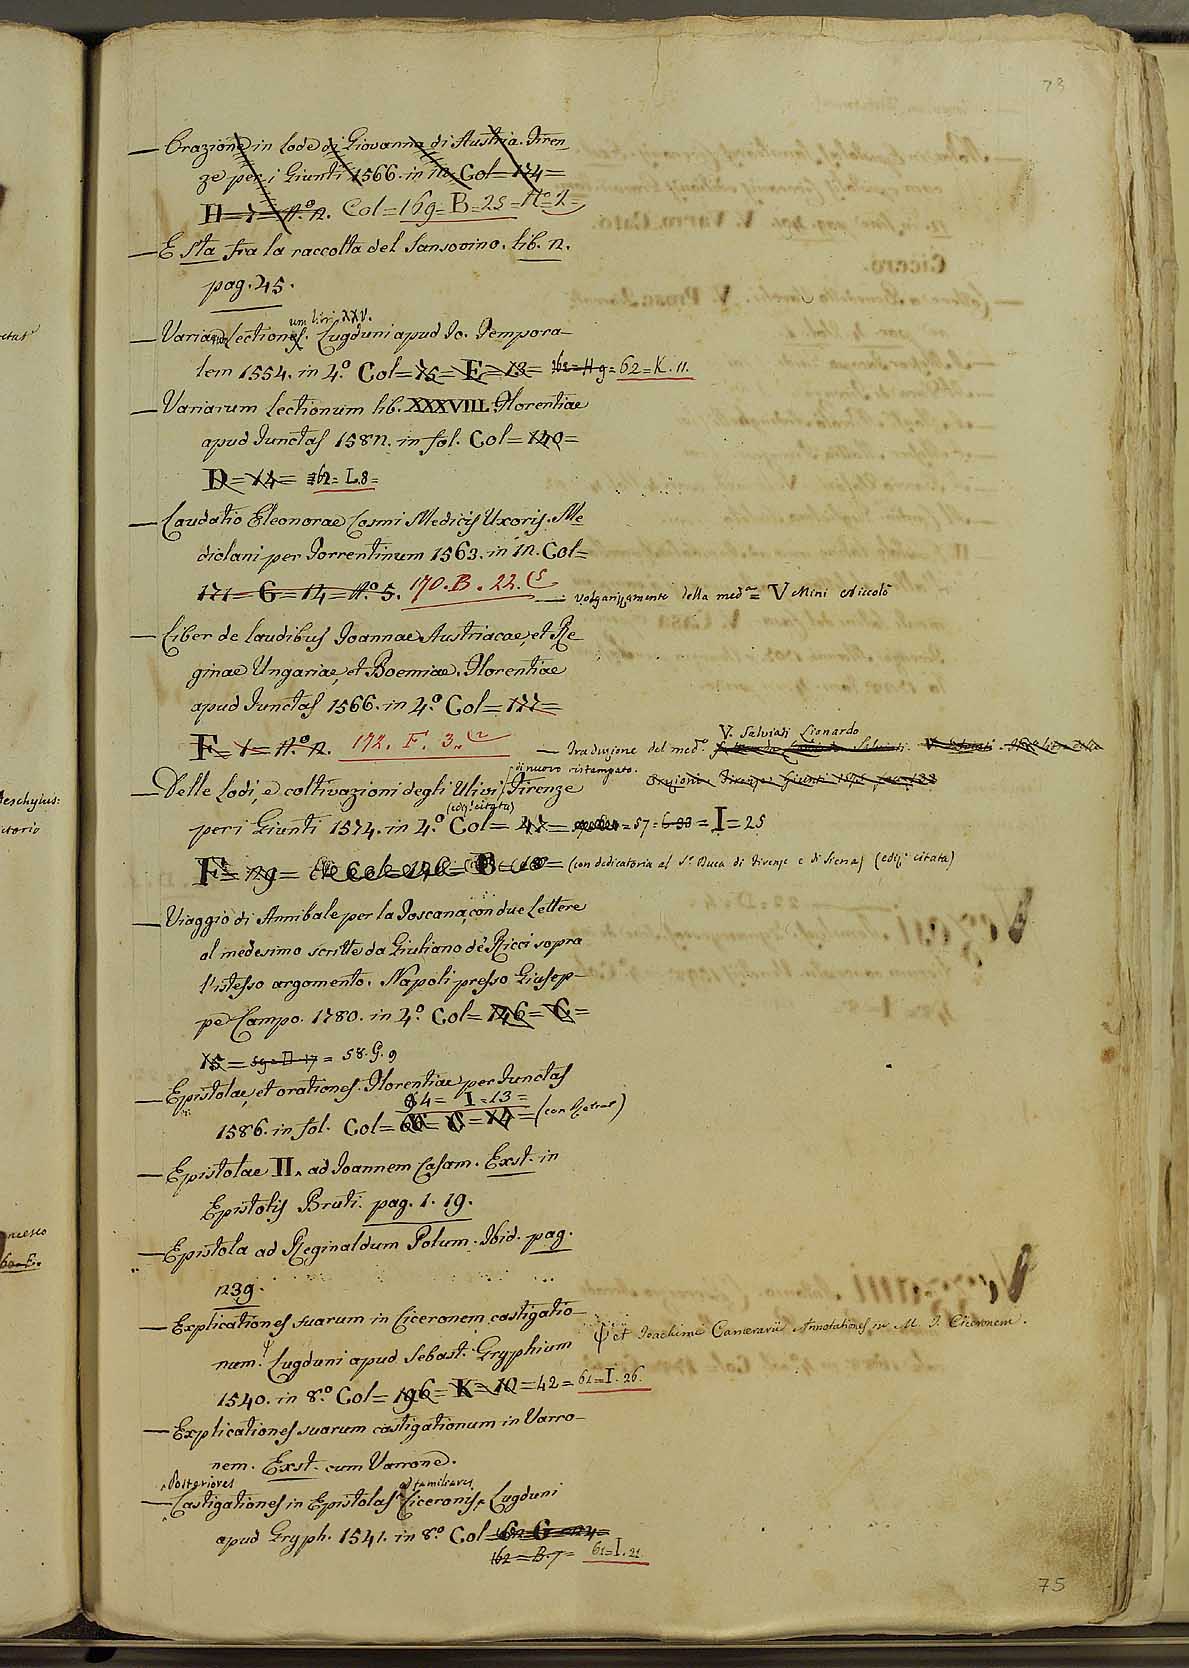 73
— Orazione in Lode di Giovanna di Austria. Firen-
ze per i Giunti 1566. in 12. Col = 174 =
H = 7 = N.º 12. Col = 169 = B = 25 = N.º 2 =
— E Sta fra la raccolta del Sansovino. lib. 12.
pag. 45.
um libri XXV.
— Variarum Lectiones. Lugduni apud Jo. Tempora-
lem 1554. in 4.º Col = 15 = E = 13 = 162 = H 9 = 62 = K. 11.
— Variarum Lectionum lib. XXXVIII. Florentiae
apud Junctas 1582. in fol. Col = 140 =
D = 14 = 162 = L.8 =
— Laudatio Eleonorae Cosmi Medicis Uxoris. Me
diolani per Torrentinum 1563. in 12. Col =
171 = G = 14 = N.º 5. 170. B. 22. (5
— volgarizzamento della med.ª = V Mini Niccolò
— Liber de laudibus Joannae Austriacae, et Re-
ginae Ungariae, et Boemiae. Florentiae
apud Junctas 1566. in 4.º Col = 177 =
F = 1 = N.º 12. 172. F. 3. (2
V. Salviati Lionardo
— Traduzione del med.º
di nuovo ristampato.
Orazioni Firenze Giunti
— Delle Lodi, e coltivazioni degli Ulivi, Firenze
(ediz.e citata)
per i Giunti 1574. in 4.º Col = 47 = = 57 = 6 33 = I = 25
F = 29 = = B = (con dedicatoria al S.r Duca di Firenze e di Siena) (ediz.e citata)
— Viaggio di Annibale per la Toscana, con due Lettere
al medesimo scritte da Giuliano de' Ricci sopra
l'istesso argomento. Napoli presso Giusep-
pe Campo. 1780. in 4.º Col = 146 = C =
15 = 59 = D 17 = 58. G. 9
— Epistolae, et orationes. Florentiae per Junctas
64 = I = 13 =
1586. in fol. Col = 66 = C = 14 = (con Retrat)
— Epistolae II. ad Joannem Casam. Exst. in
Epistolis Bruti. pag. 1. 19.
— Epistola ad Reginaldum Polum. Ibid. pag.
239.
— Explicationes suarum in Ciceronem castigatio-
φ et Joachimi Camerarii Annotationes in M. T. Ciceronem.
num. φ Lugduni apud Sebast. Gryphium
1540. in 8.º Col = 196 = K = 10 = 42 = 61 = I. 26.
— Explicationes suarum castigationum in Varro-
nem. Exst. cum Varrone.
Posteriores ad familiares
— Castigationes in Epistolas Ciceronis, Lugduni
apud Gryph. 1541. in 8.º Col = 62 = G = 24 =
162 = B. 7 = 61 = I. 21
75